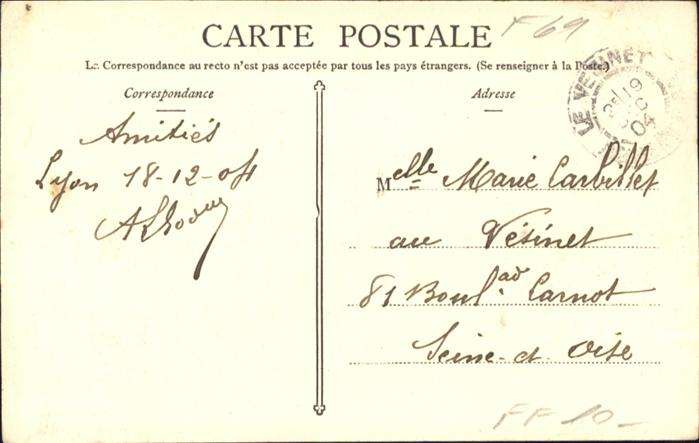 F 69
CARTE POSTALE
La Correspondance au recto n'est pas acceptée par tous les pays étrangers. (Se renseigner à la Poste.)
Correspondance
Amitiés
Lyon 18-12-04
Adresse
LE VESINET
19
04
Melle Marie Carbillet
au Vésinet
81 Boulad Carnot
Seine-et Oise
FF 10-